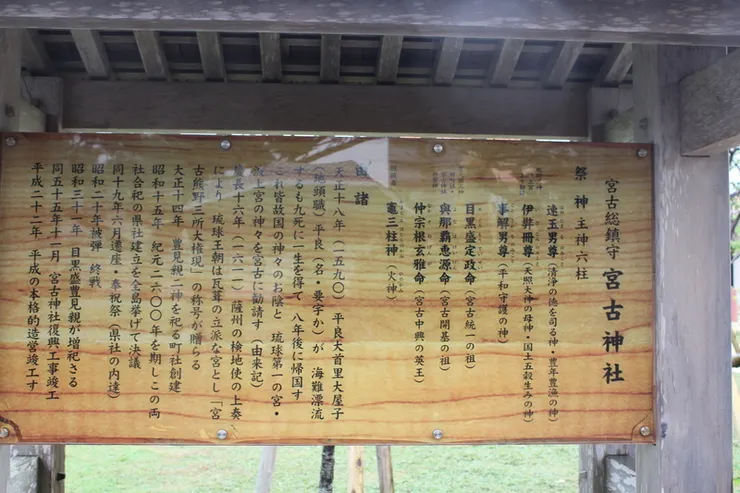 宮古総鎮守 宮古神社
祭神 主神六柱
速玉男尊(清浄の徳を司る神・豊年豊漁の神)
伊弉冊尊(天照大神の母神・国土五穀生みの神)
事解男尊(平和守護の神)
目黒盛定政命(宮古統一の祖)
與那覇恵源命(宮古開基の祖)
仲宗根玄雅命(宮古中興の英王)
竈三柱神(火神)
由緒
天正十八年(一五九〇) 平良大首里大屋子
(地頭職)平良(名・要字か)が 海難漂流
するも九死に一生を得て 八年後に帰国す
これ皆故国の神々のお陰と 琉球第一の宮・
波上宮の神々を宮古に勧請す(由来記)
慶長十六年(一六一一)薩州の検地使の上奏
により 琉球王朝は瓦葺の立派な宮とし「宮
古熊野三所大権現」の称号が贈らる
大正十四年 豊見親二神を祀る町社創建
昭和十五年 紀元二六〇〇年を期しこの両
社合祀の県社建立を全島挙げて決議
同十九年六月遷座・奉祝祭(県社の内達)
昭和二十年被弾 終戦
昭和三十一年 目黒盛豊見親が増祀さる
同五十五年十一月 宮古神社復興工事竣工
平成二十二年 平成の本格的造営竣工す